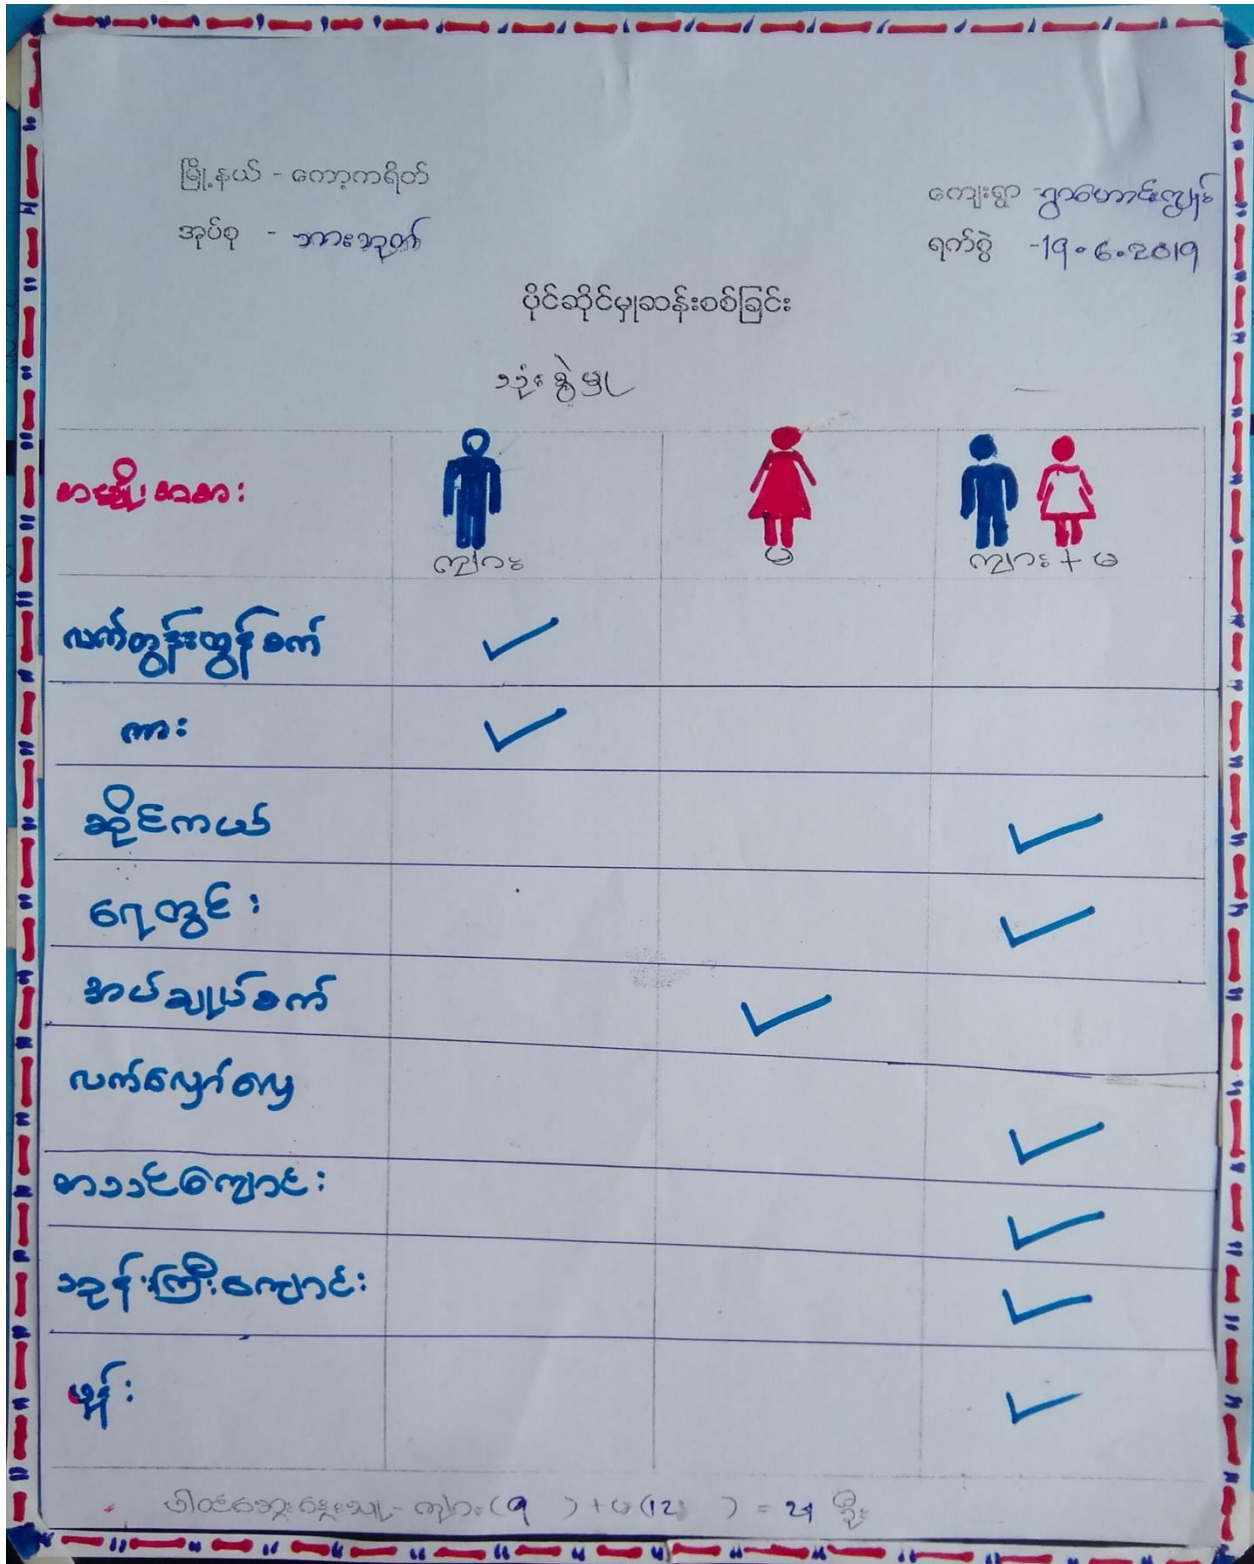 မြို့နယ် - ကော့ကရိတ်
ကျေးရွာ - ရွာဟောင်းကျွန်း
အုပ်စု -
ရက်စွဲ -19.6.2019
ပိုင်ဆိုင်မှုဆန်းစစ်ခြင်း
သုံးစွဲမှု
အမျိုးအစား
ကျား
မ
ကျား + မ
လက်တွန်းထွန်စက်
ကား
ဆိုင်ကယ်
ရေတွင်း
အပ်ချုပ်စက်
လက်လှော်လှေ
စာသင်ကျောင်း
ဘုန်းကြီးကျောင်း
ဖုန်း
ပါဝင်ဆွေးနွေးသူ - ကျား (9) + မ (12) = 21 ဦး